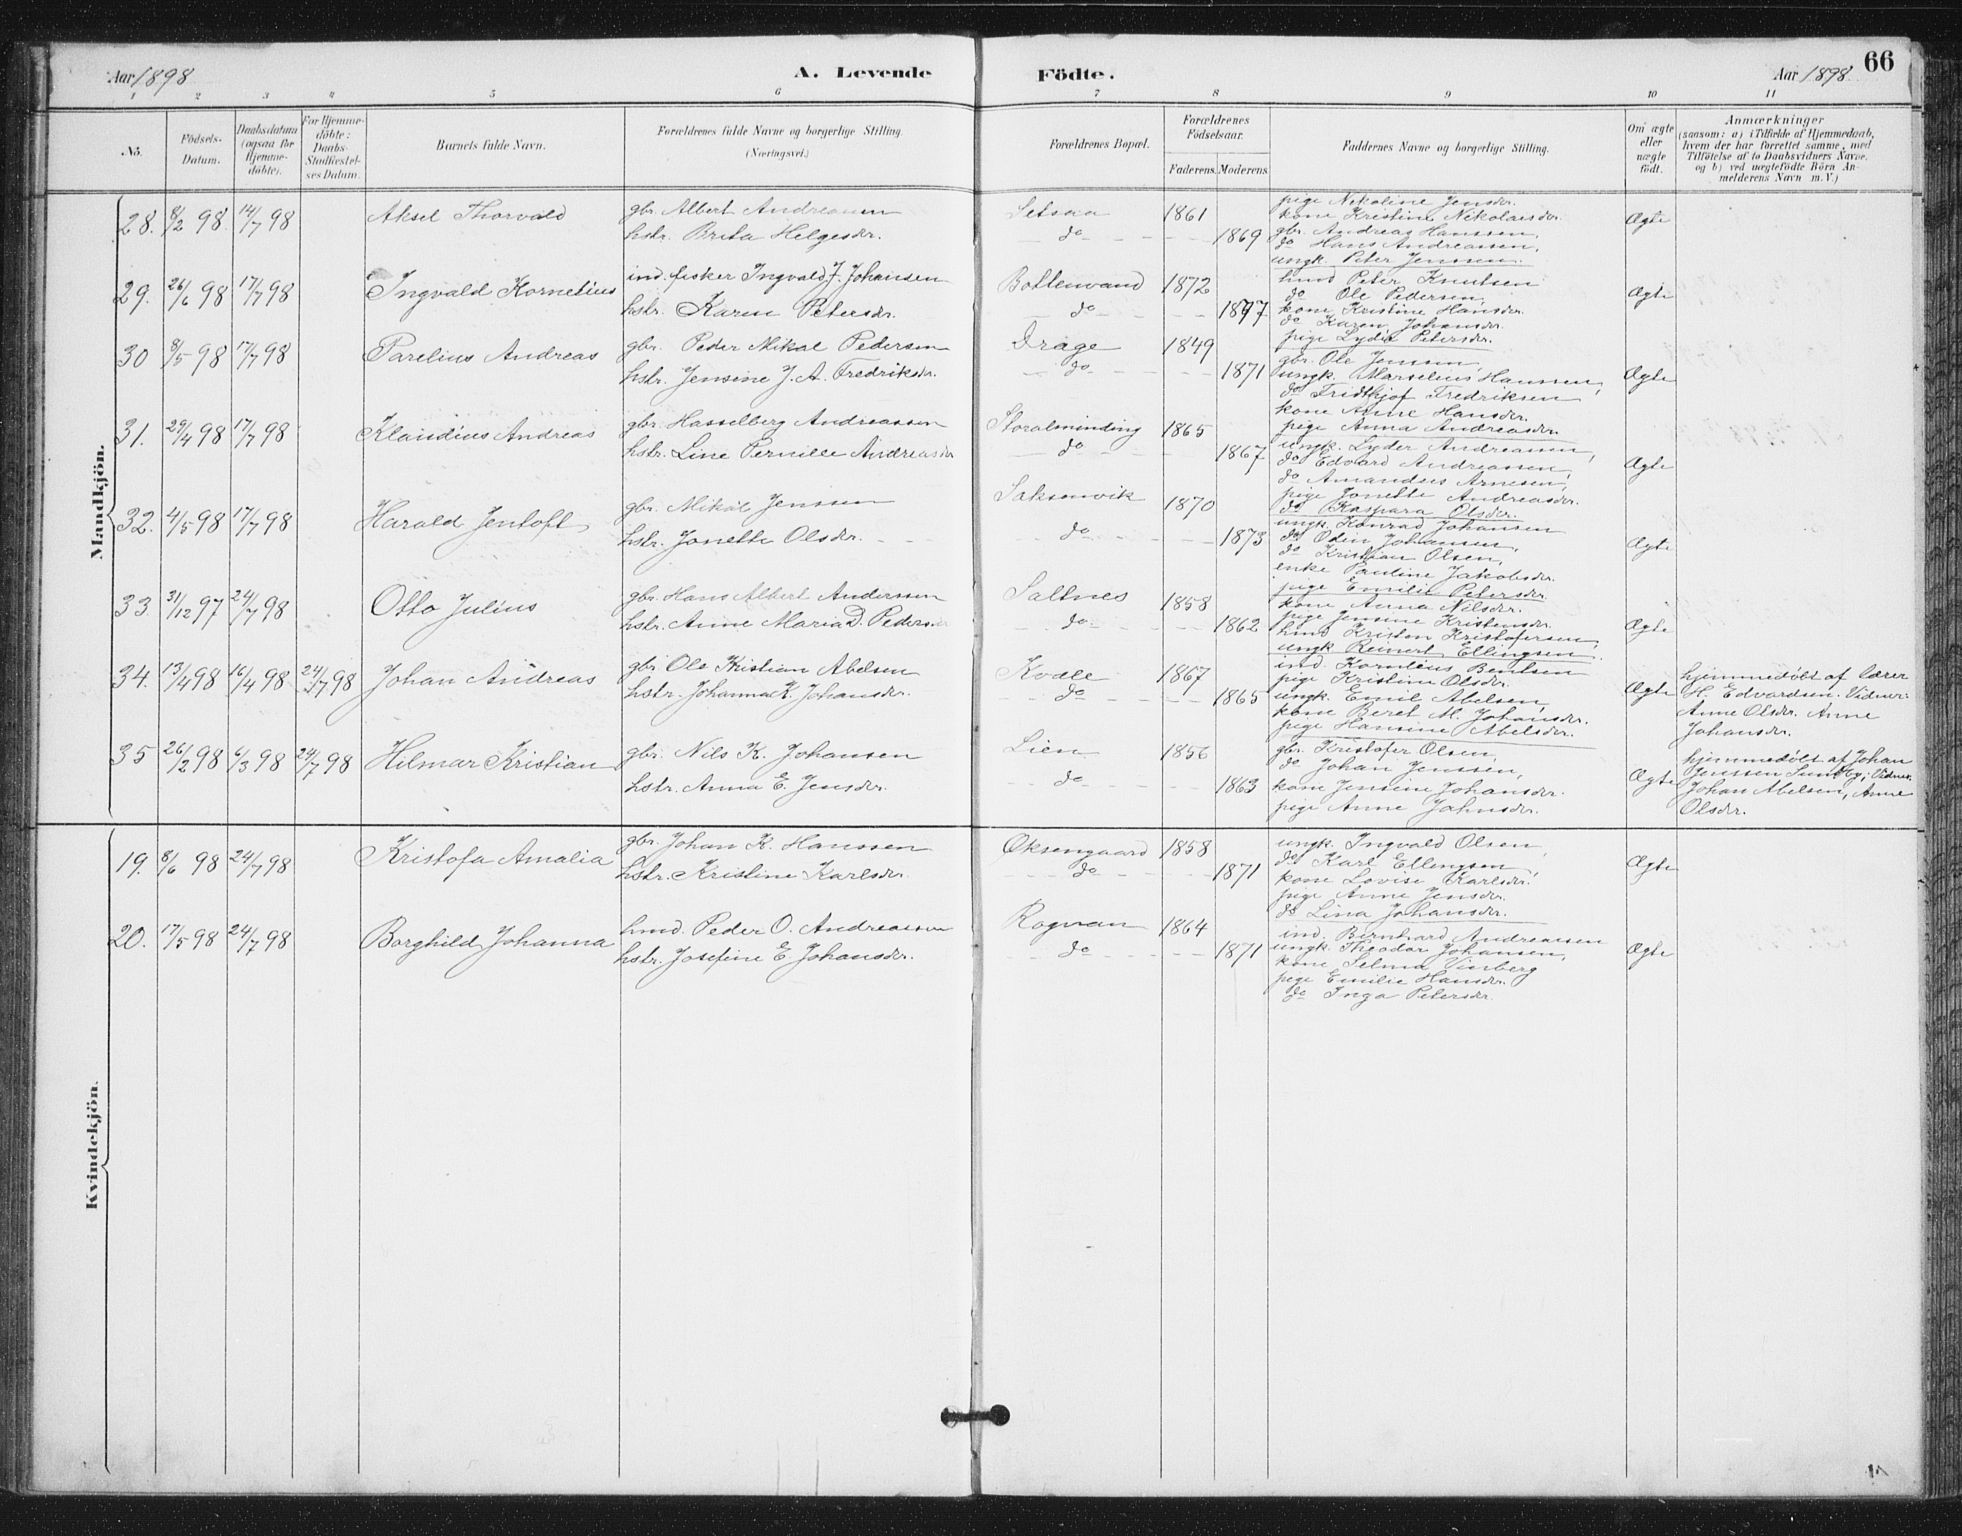 Aar 1898
A. Levende
Födte.
Aar 1898.
66
1 2 3 4 5 6 7 8 9 10 11
No.
Födsels-Datum.
Daabsdatum (ogsaa for Hjemme-döbte).
For Hjemme-döbte: Daabs-Stadfæstel-ses Datum.
Barnets fulde Navn.
Forældrenes fulde Navne og borgerlige Stilling.
(Næringsvei.)
Forældrenes Bopæl.
Forældrenes Födselsaar.
Faderens. Moderens.
Faddernes Navne og borgerlige Stilling.
Om ægte eller uægte födt.
Anmærkninger
(saasom: a) i Tilfælde af Hjemmedaab, hvem der har forrettet samme, med Tilföielse af to Daabsvidners Navne, og b) ved uægtefödte Börn An-melderens Navn m. V.)
Mandkjön.
28. 8/2 98. 14/7 98 Aksel Thorvald
gbr. Albert Andreassen
hstr. Brita Helgesdr.
Setsaa 1861
do 1869
pige Nekoline Jensdr.
kone Kristine Nikolaisdr.
gbr. Andreas Hanssen,
do Hans Andreassen,
ungk. Peter Jenssen.
Ægte
29. 26/6 98 17/7 98 Ingvald Kornelius
ind. fisker Ingvald J. Johansen
hstr. Karen Petersdr.
Bottenvand 1872
do 1897.
hmd Peter Knutsen
do Ole Pedersen,
kone Kristine Hansdr.
do Karen Johansdr.
pige Lydia Petersdr.
Ægte
30 8/5 98 17/7 98 Parelius Andreas
gbr. Peder Mikal Pedersen
hstr. Jensine J. A. Fredriksdr.
Drage 1849
do 1871
gbr. Ole Jenssen,
ungk. Marselius Hanssen,
do Fridtjof Fredriksen
kone Anne Hansdr.
pige Anna Andreasdr.
Ægte
31. 29/4 98 17/7 98 Klaudius Andreas
gbr. Hasselberg Andreassen
hstr. Line Pernille Andreasdr
Storalminding 1865
do 1867
ungk. Lyder Andreassen,
do Edvard Andreassen,
do Amandus Arnesen,
pige Jonette Andreasdr.
do Kaspara Olsdr.
Ægte
32. 4/5 98 17/7 98 Harald Jentoft
gbr. Mikal Jenssen
hstr. Jonette Olsdr.
Saksenvik 1870
do 1873
ungk. Konrad Johansen
do Odin Johansen,
do Kristian Olsen,
enke Pauline Jakobsdr.
pige Emilie Petersdr.
Ægte
33. 31/12 97 24/7 98 Otto Julius
gbr. Hans Albert Anderssen
hstr. Anne Maria D. Pedersdr
Saltnes 1858
do. 1862
kone Anna Nilsdr.
pige Jensine Kristensdr.
hmd Kristen Kristofersen,
ungk Reinert Ellingsen.
Ægte
34. 13/4 98 16/4 98 24/7 98 Johan Andreas
gbr. Ole Kristian Abelsen
hstr. Johanna K. Johansdr.
Kvæle 1867
do 1865
ind. Kornelius Bentsen
pige Kristine Olsdr.
ungk. Emil Abelsen,
kone Beret M. Johansdr.
pige Hansine Abelsdr.
Ægte
hjemmedøbt af lærer
H. Edvardsen. Vidner:
Anne Olsdr. Anne
Johansdr.
35 26/2 98 6/3 98 24/7 98 Hilmar Kristian
gbr. Nils K. Johansen
hstr. Anna E. Jensdr.
Lien 1856
do 1863
gbr. Kristofer Olsen,
do Johan Jenssen,
kone Jensine Johansdr.
pige Anne Jahnsdr.
Ægte
hjemmedøbt af Johan
Jenssen Vidner.
Johan Abelsen, Anne
Olsdr.
Kvindekjön.
19. 8/6 98 24/7 98 Kristofa Amalia
gbr. Johan K. Hanssen
hstr. Kristine Karlsdr.
Øksengaard 1858
do 1871
ungk. Ingvald Olsen,
do Karl Ellingsen,
kone Lovise Karlsdr.
pige Anne Jensdr.
do Lina Johansdr.
Ægte
20. 17/5 98 24/7 98 Borghild Johanna
hmd. Peder O. Andreassen
hstr. Josefine E. Johansdr.
Rognan 1864
do 1871
ind. Bernhard Andreassen
ungk. Theodor Johansen,
kone Selma
pige Emilie Hansdr.
do Inga Petersdr.
Ægte